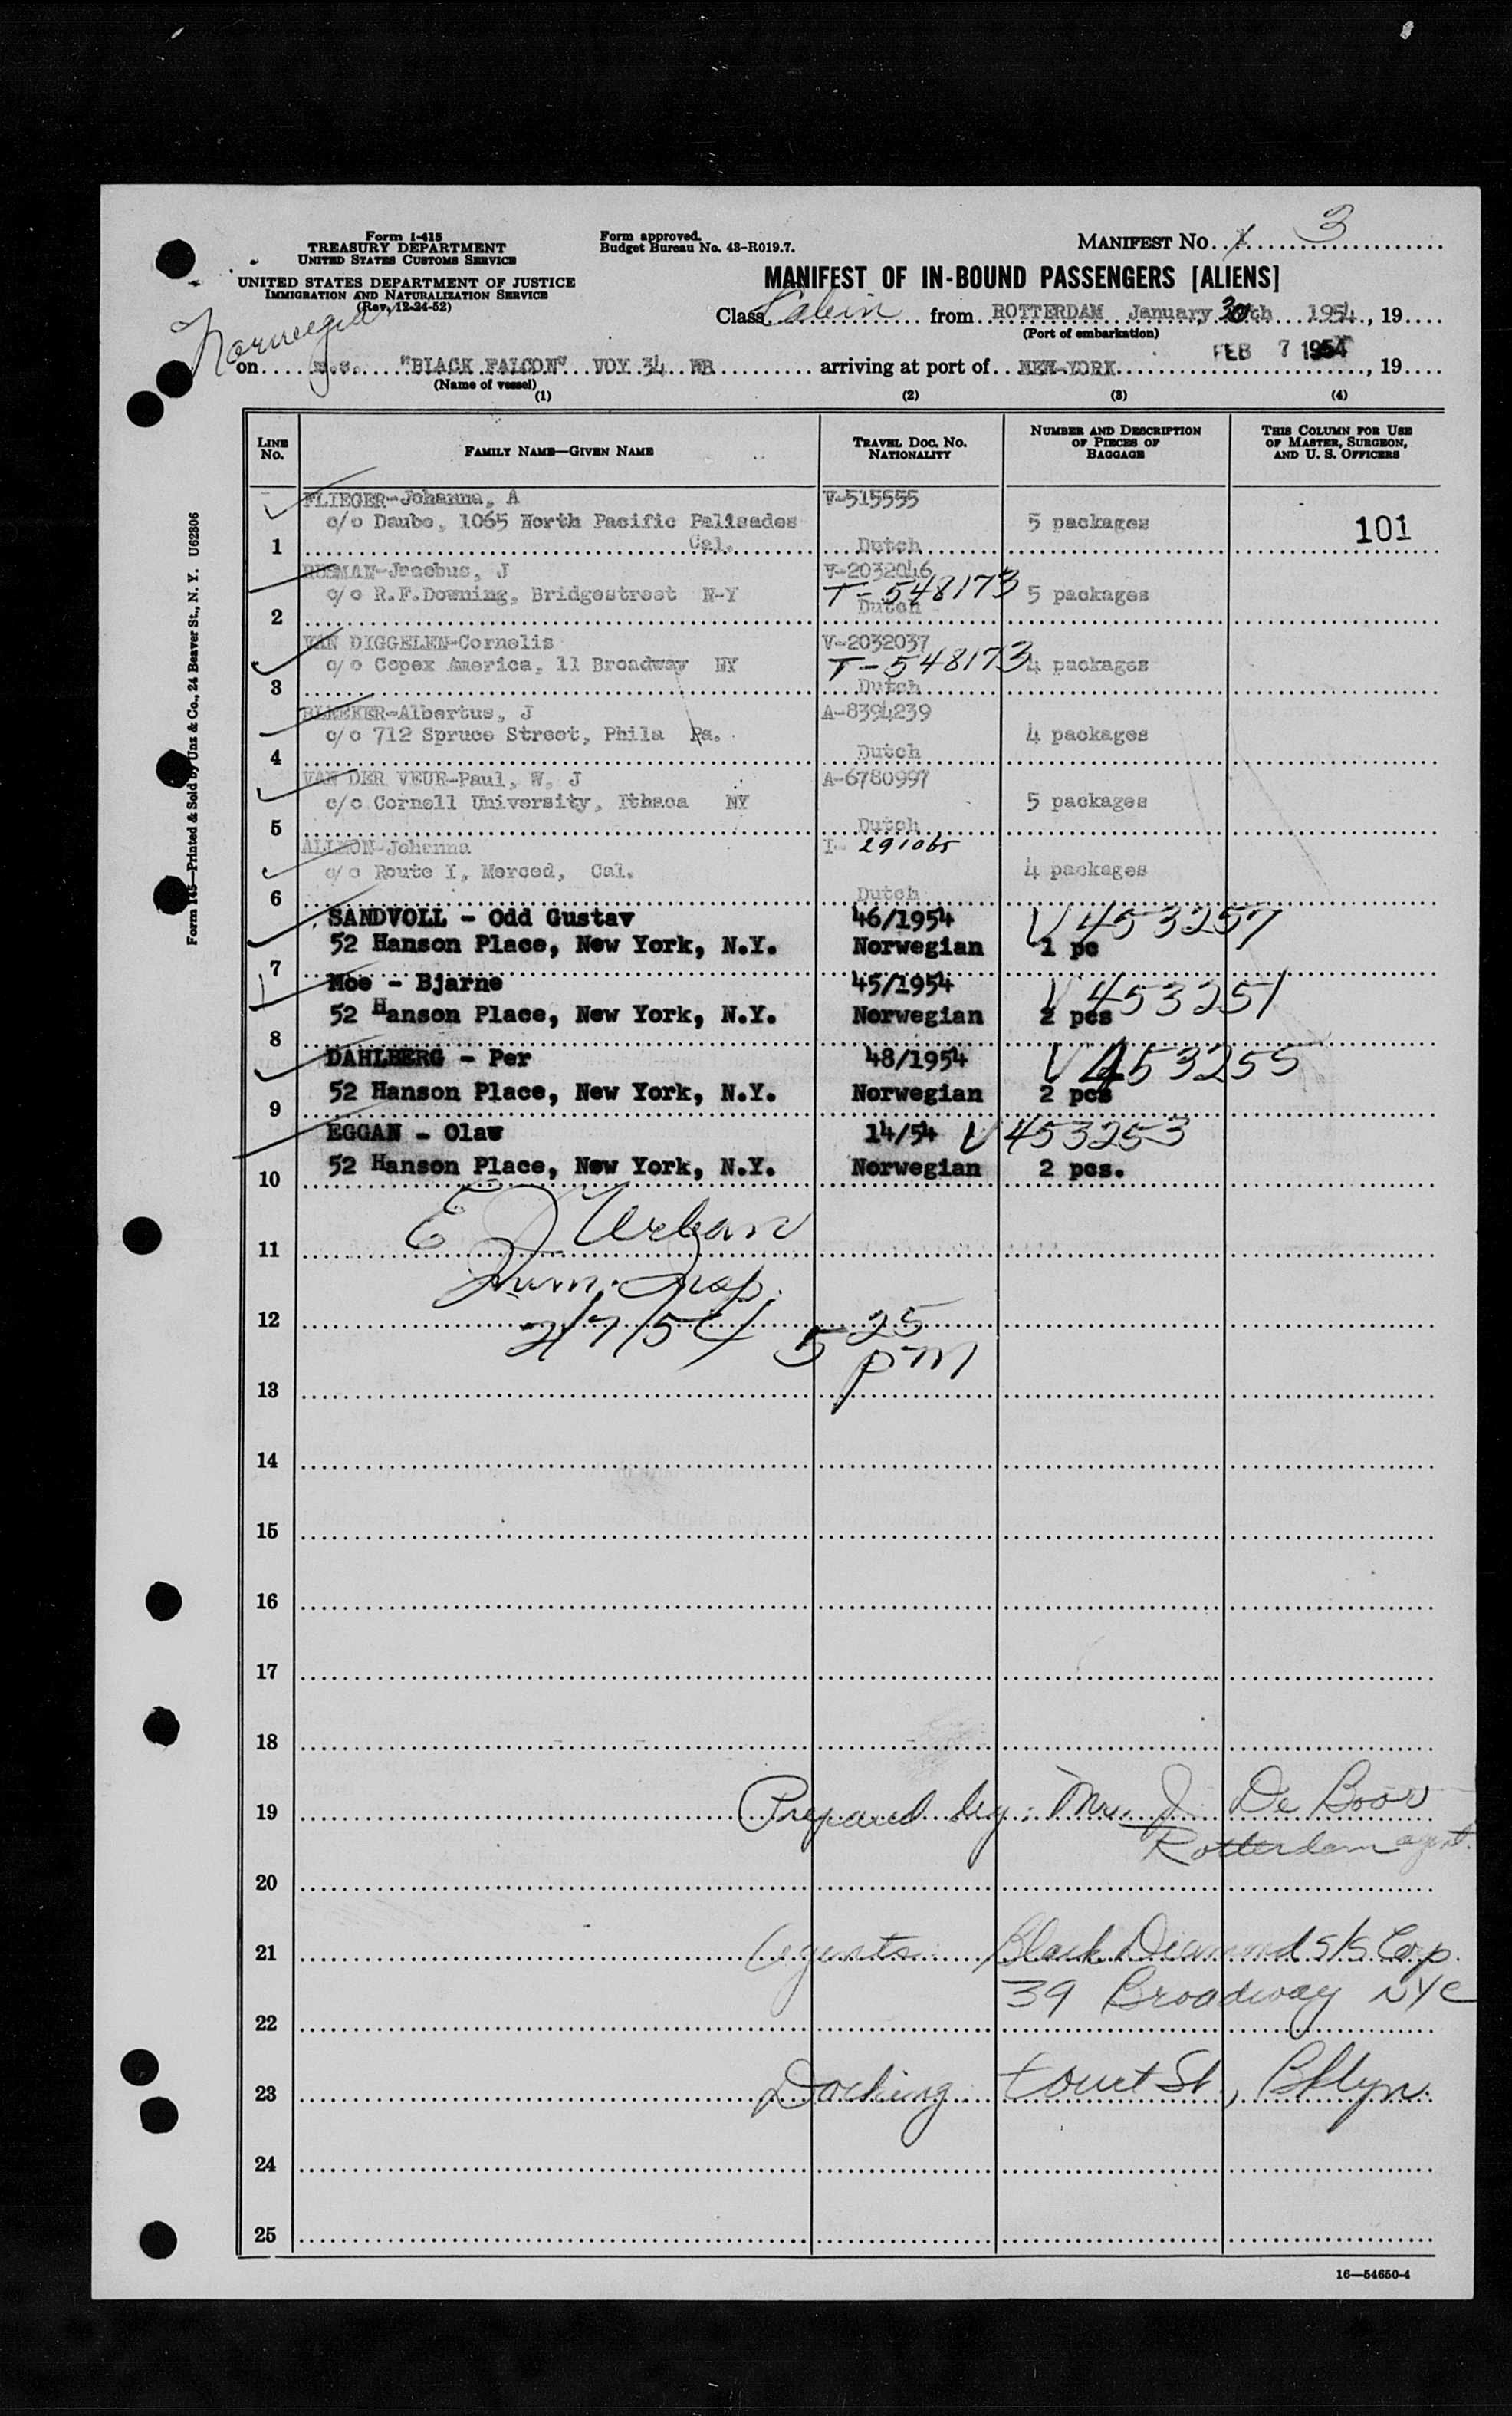 Form I-415
TREASURY DEPARTMENT
UNITED STATES CUSTOMS SERVICE
UNITED STATES DEPARTMENT OF JUSTICE
IMMIGRATION AND NATURALIZATION SERVICE
(Rev. 12-24-52)
Form approved.
Budget Bureau No. 43-R019.7.
MANIFEST NO. 1 3
MANIFEST OF IN-BOUND PASSENGERS [ALIENS]
Class Cabin from ROTTERDAM January, 30th 1954, 19
(Port of embarkation)
Norwegian
FEB 7 1954
on m.s. "BLACK FALCON" VOY 34 WB arriving at port of NEW-YORK, 19
(Name of vessel)
(1) (2) (3) (4)
LINE NO.
FAMILY NAME—GIVEN NAME
TRAVEL DOC. NO. NATIONALITY
NUMBER AND DESCRIPTION OF PIECES OF BAGGAGE
THIS COLUMN FOR USE OF MASTER, SURGEON, AND U. S. OFFICERS
FLIEGER-Johanna, A V-515555
c/o Daube, 1065 North Pacific Palisades 5 packages 101
1 Cal. Dutch
-Jacobus, J V-2032046
c/o R.F.Downing, Bridgestreet N-Y T-548173 5 packages
2 Dutch
VAN DIGGELEN-Cornelis V-2032037
c/o Copex America, 11 Broadway NY T-548173 4 packages
3 Dutch
BLEEKER-Albertus, J A-8394239
c/o 712 Spruce Street, Phila Pa. 4 packages
4 Dutch
VAN DER VEUR-Paul, W, J A-6780997
c/o Cornell University, Ithaca NY 5 packages
5 Dutch
-Johanna I- 291065
c/o Route I, Merced, Cal. 4 packages
6 Dutch
SANDVOLL - Odd Gustav 46/1954 V 453257
52 Hanson Place, New York, N.Y. Norwegian 1 pc
7
Moe - Bjarne 45/1954 V 453251
52 Hanson Place, New York, N.Y. Norwegian 2 pcs
8
DAHLBERG - Per 48/1954 V 453255
52 Hanson Place, New York, N.Y. Norwegian 2 pcs
9
EGGAN - Olav 14/54 V 453253
52 Hanson Place, New York, N.Y. Norwegian 2 pcs.
10
E J Urban
11
Imm. Insp.
12
2/7/54 5 25 pm
13
14
15
16
17
18
19 Prepared by: Mr. J De Boor
Rotterdam agent.
20
21 Agents Black Diamond S/S Corp.
39 Broadway NYC
22
23 Docking Court St., Bklyn.
24
25
16—54650-4
Form I-415—Printed & Sold by Unz & Co., 24 Beaver St., N. Y. U62306